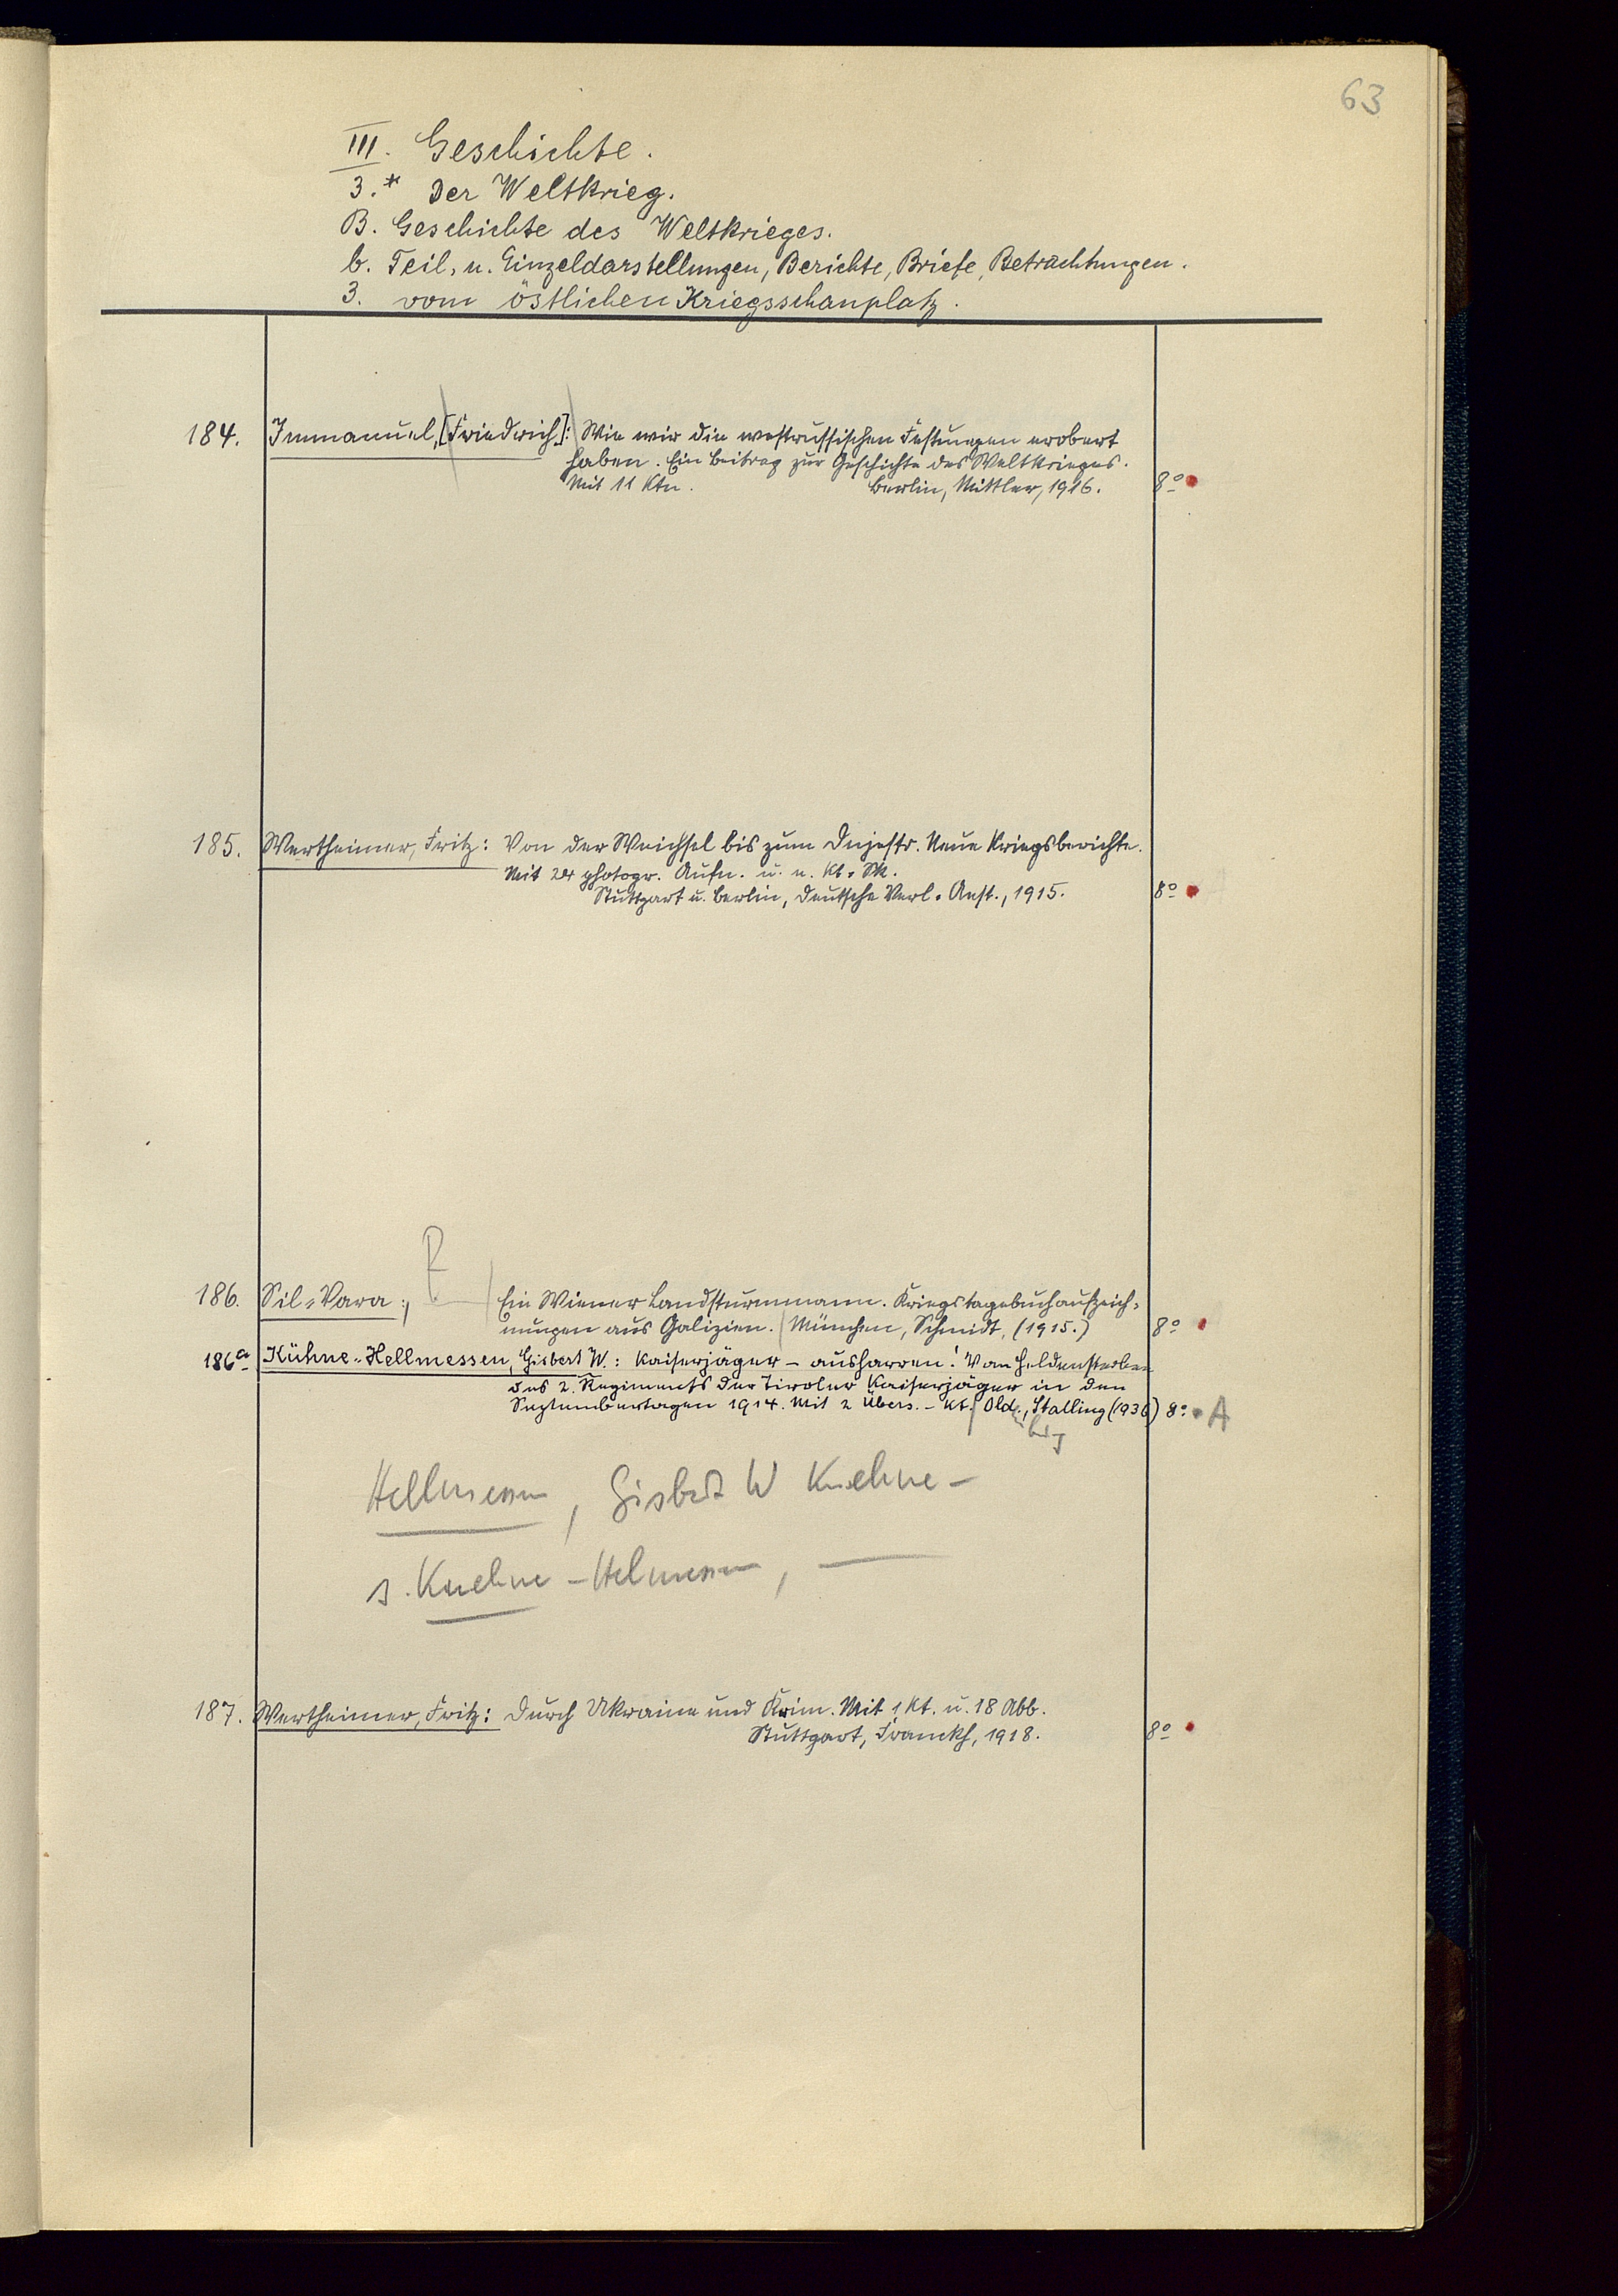 63
III. Geschichte.
3.* Der Weltkrieg.
B. Geschichte des Weltkrieges.
b. Teil- u. Einzeldarstellungen, Berichte, Briefe, Betrachtungen.
3. vom östlichen Kriegsschauplatz.
184. Immanuel, [Friedrich]: Wie wir die westrussischen Festungen erobert
haben. Ein Beitrag zur Geschichte des Weltkrieges.
Mit 11 Ktn. Berlin, Mittler, 1916. 8°
185. Wertheimer, Fritz: Von der Weichsel bis zum Dnjestr. Neue Kriegsberichte.
Mit 24 photogr. Aufn. u. u. Kt.-Sk.
Stuttgart u. Berlin, Deutsche Verl.-Anst., 1915. 8°
186. Sil-Vara: Ein Wiener Landsturmmann. Kriegstagebuchaufzeich-
nungen aus Galizien. München, Schmidt, (1915.) 8°
186a Kühne-Hellmessen, Gisbert W.: Kaiserjäger – ausharren! Vom Heldensterben
des 2. Regiments der Tiroler Kaiserjäger in den
Septembertagen 1914. Mit 2 Übers.-Kt. Old., Stalling (1936) 8° A
Hellmessen, Gisbert W Kuehne-
s. Kuehne-Helmessen, —
187. Wertheimer, Fritz: Durch Ukraine und Krim. Mit 1 Kt. u. 18 Abb.
Stuttgart, Franckh, 1918. 8°